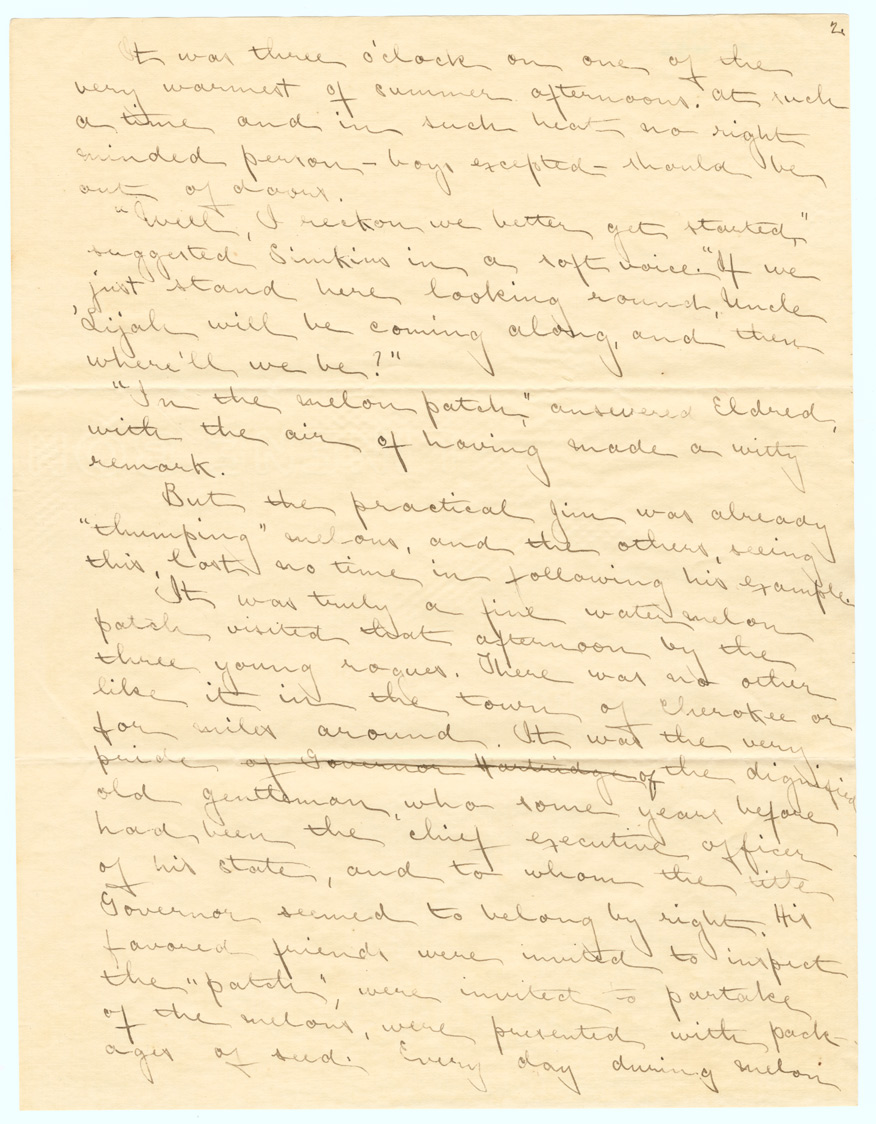 2.
It was three o'clock on one of the
very warmest of summer afternoons. At such
a time and in such heat no right
minded person - boys excepted - should be
out of doors.
"Well, I reckon we better get started,"
suggested Simkins in a soft voice. "If we
just stand here looking round, Uncle
'Lijah will be coming along, and then
where'll we be?"
"In the melon patch," answered Eldred,
with the air of having made a witty
remark.
But the practical Jim was already
"thumping" melons, and the others, seeing
this, lost no time in following his example.
It was truly a fine watermelon
patch visited that afternoon by the
three young rogues. There was no other
like it in the town of Cherokee or
for miles around. It was the very
pride of Governor Hartridge of the dignified
old gentleman who some years before
had been the chief executive officer
of his state, and to whom the title
Governor seemed to belong by right. His
favored friends were invited to inspect
the "patch", were invited to partake
of the melons, were presented with pack-
ages of seed. Every day during melon